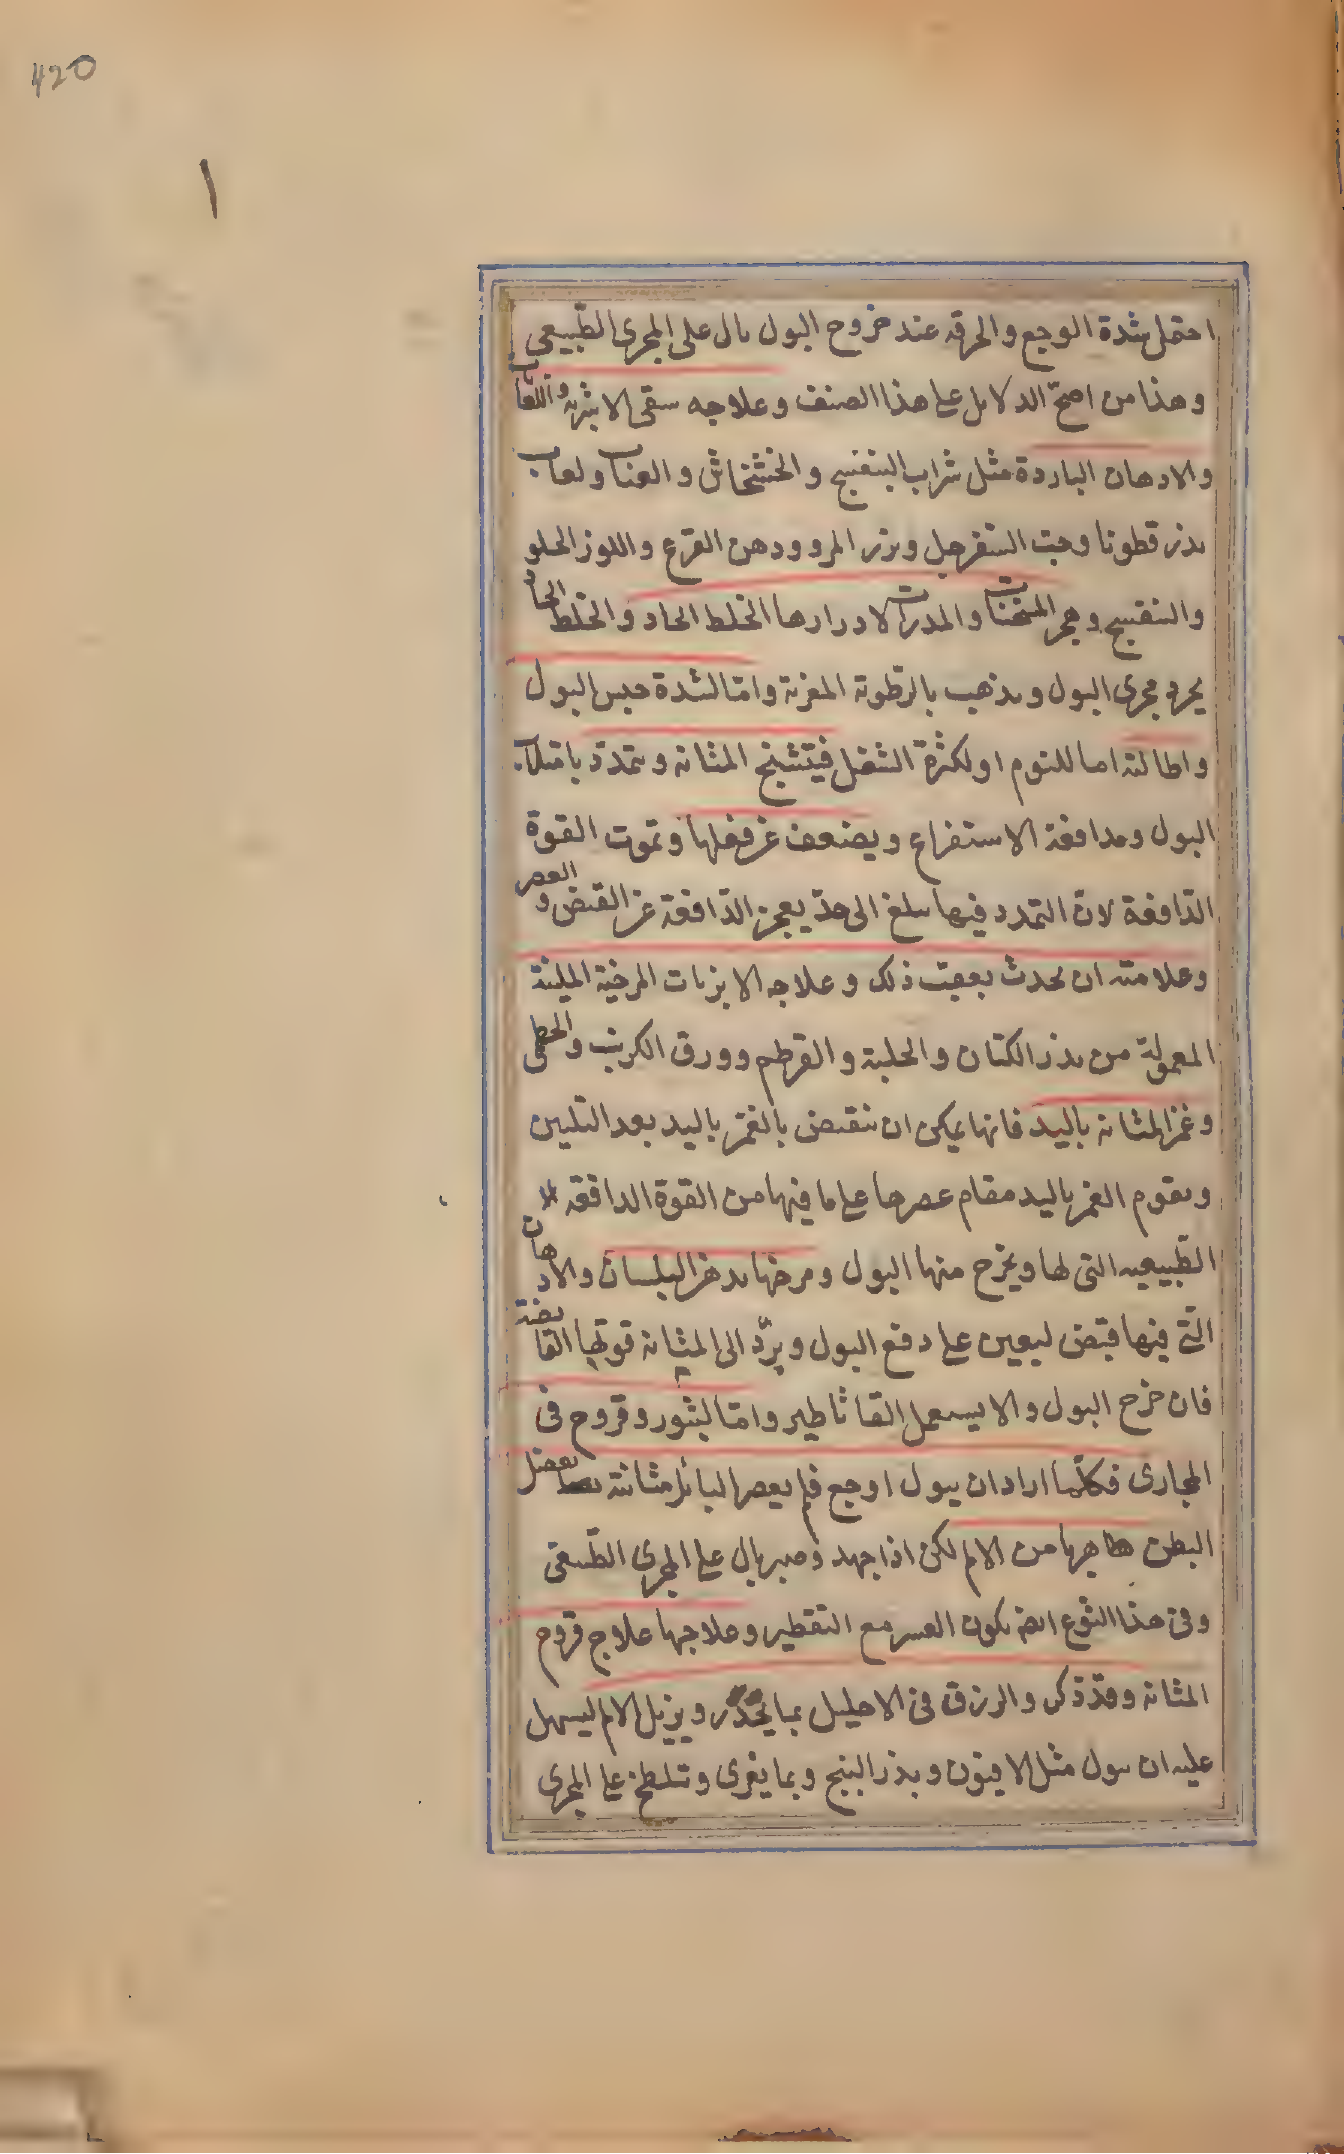 420
١
احتمل شدة الوجع والحرقه عند خروج البول بال على المجرى الطبيعي
وهذا من اصح الدلايل على هذا الصنف وعلاجه سقى الاشربه واللعاب
والادهان الباردة مثل شراب البنفسج والخشخاش والعناب ولعاب
بذر قطونا وحب السفرجل وبزر المرو ودهن القرع واللوز الحلو
والبنفسج وهجر المسخنات والمدرات لادرارها الخلط الحاد والخلط الحاد
يجرد مجرى البول ويذهب بالرطوبة المغرية واما لشدة حبس البول
واطالته اما للنوم او لكثرة الشغل فيتشنج المثانه وتتمدد بامتلاء
البول ومدافعة الاستفراغ ويضعف عن فعلها وتموت القوة
الدافعة لان التمدد فيها يبلغ الى حد يعجز الدافعة عن القبض والعصر
وعلامته ان يحدث بعقب ذلك وعلاجه الابزنات المرخية الملينة
المعمولة من بذر الكتان والحلبة والقرطم وورق الكرنب والخطمى
وغمز المثانه باليد فانها يمكن ان تنقبض بالغمز باليد بعد التليين
ويقوم الغمز باليد مقام عصرها على ما فيها من القوة الدافعه
الطبيعيه التى لها ويخرج منها البول ومرخها بدهن البلسان والادهان
التى فيها قبض ليعين على دفع البول ويرد الى المثانه قوتها القابضة
فان خرج البول والا يستعمل القاثاطير واما لبثور وقروح فى
المجارى فكلما اراد ان يبول اوجع فلم يعصر البائل مثانته بعضل
البطن هاربا من الالم لكن اذا جهد وصبر بال على المجرى الطبيعى
وفى هذا النوع ايضا يكون العسر مع التقطير وعلاجها علاج قروح
المثانه وقد ذكر والزرق فى الاحليل بما يخدر ويزيل الالم ليسهل
عليه ان يبول مثل الافيون وبذر البنج وبما يغرى وتلطخ على المجرى